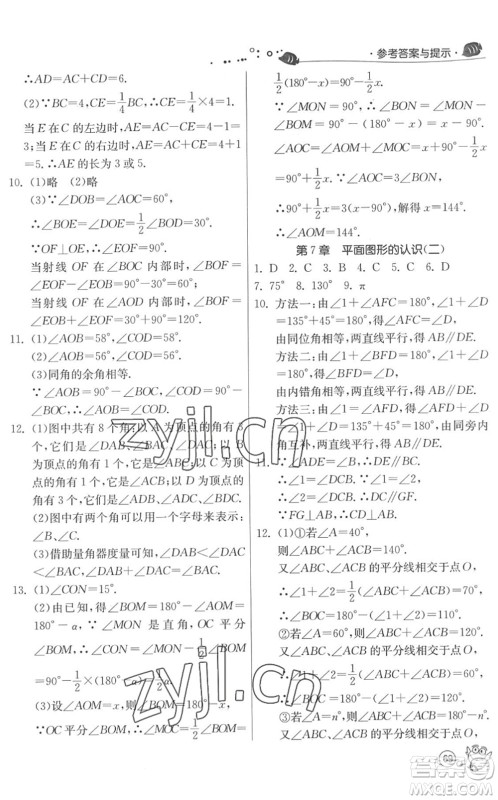 参考答案与提示
∴AD=AC+CD=6.
(2)∵BC=4,CE=1/4BC=1/4×4=1.
当E在C的左边时,AE=AC-CE=4-1=
3;当E在C的右边时,AE=AC+CE=4+1
=5.∴AE的长为3或5.
10. (1)略 (2)略
(3)∵∠DOB=∠AOC=60°,
∴∠BOE=∠DOE=1/2∠BOD=30°.
∵OF⊥OE,∴∠EOF=90°.
当射线OF在∠BOC内部时,∠BOF=
∠EOF-∠BOE=60°;
当射线OF在∠BOD内部时,∠BOF=
∠EOF+∠BOE=30°+90°=120°.
11. (1)∠AOB=58°,∠COD=58°.
(2)∠AOB=56°,∠COD=56°.
(3)同角的余角相等.
∵∠AOB=90°-∠BOC,∠COD=90°-
∠BOC,∴∠AOB=∠COD.
12. (1)图中共有8个角,以A为顶点的角有3
个,它们是∠DAB、∠DAC、∠BAC;以B
为顶点的角有1个,它是∠B;以D为顶点
的角有3个,它们是∠ADN、∠ADB、
∠BDN;以C为顶点的角有1个,它是∠C.
(2)图中有两个角可以用一个字母来表示:
∠B、∠C.
(3)借助量角器度量可知,∠DAB<∠DAC
<∠BAC,∠BDN<∠ADB<∠ADN.
13. (1)∠CON=15°.
(2)由已知,得∠BOM=180°-∠AOM=
180°-α,∵∠MON是直角,OC平分
∠BOM,∴∠CON=∠MON-1/2∠BOM
=90°-1/2(180°-α)=1/2α.
(3)设∠AOM=x,则∠BOM=180°-x,
∵OC平分∠BOM,∴∠MOC=1/2∠BOM=
1/2(180°-x)=90°-1/2x.
∵∠MON=90°,∴∠BON=∠MON-
∠BOM=90°-(180°-x)=x-90°.
∵∠AOC=∠AOM+∠MOC=x+90°-1/2x=
90°+1/2x,∠AOC=3∠BON,∴90°+1/2x=
3(x-90°),解得x=144°.
∴∠AOM=144°.
第7章 平面图形的认识(二)
1. D 2. C 3. B 4. C 5. C 6. D
7. 75° 8. 130° 9. π
10. 方法一:∵∠1+∠AFC=180°,∠1+∠D
=135°+45°=180°,∴∠AFC=∠D.
由同位角相等,两直线平行,得AB∥DE.
方法二:∵∠1+∠BFD=180°,∠1+∠D
=180°,∴∠BFD=∠D.
由内错角相等,两直线平行,得AB∥DE.
方法三:∵∠AFD=∠1=135°,∴∠AFD
+∠D=135°+45°=180°.由同旁内
角互补,两直线平行,得AB∥DE.
11. ∵∠B=∠DCE,∴AB∥CD.
∵∠1=∠2,∴CD∥GF.
∵FG⊥AB,∴CD⊥AB.
12. (1)①若∠A=40°,
则∠ABC+∠ACB=180°-∠A=140°.
又∠ABC、∠ACB的平分线相交于点O,
∴∠1+∠2=1/2(∠ABC+∠ACB)=70°.
∴∠BOC=180°-(∠1+∠2)=110°.
②若∠A=60°,
则∠ABC+∠ACB=180°-∠A=120°.
又∠ABC、∠ACB的平分线相交于点O,
∴∠1+∠2=1/2(∠ABC+∠ACB)=60°.
∴∠BOC=180°-(∠1+∠2)=120°.
③若∠A=80°,
则∠ABC+∠ACB=180°-∠A=100°.
又∠ABC、∠ACB的平分线相交于点O,
zyjl.cn
zyjl.cn